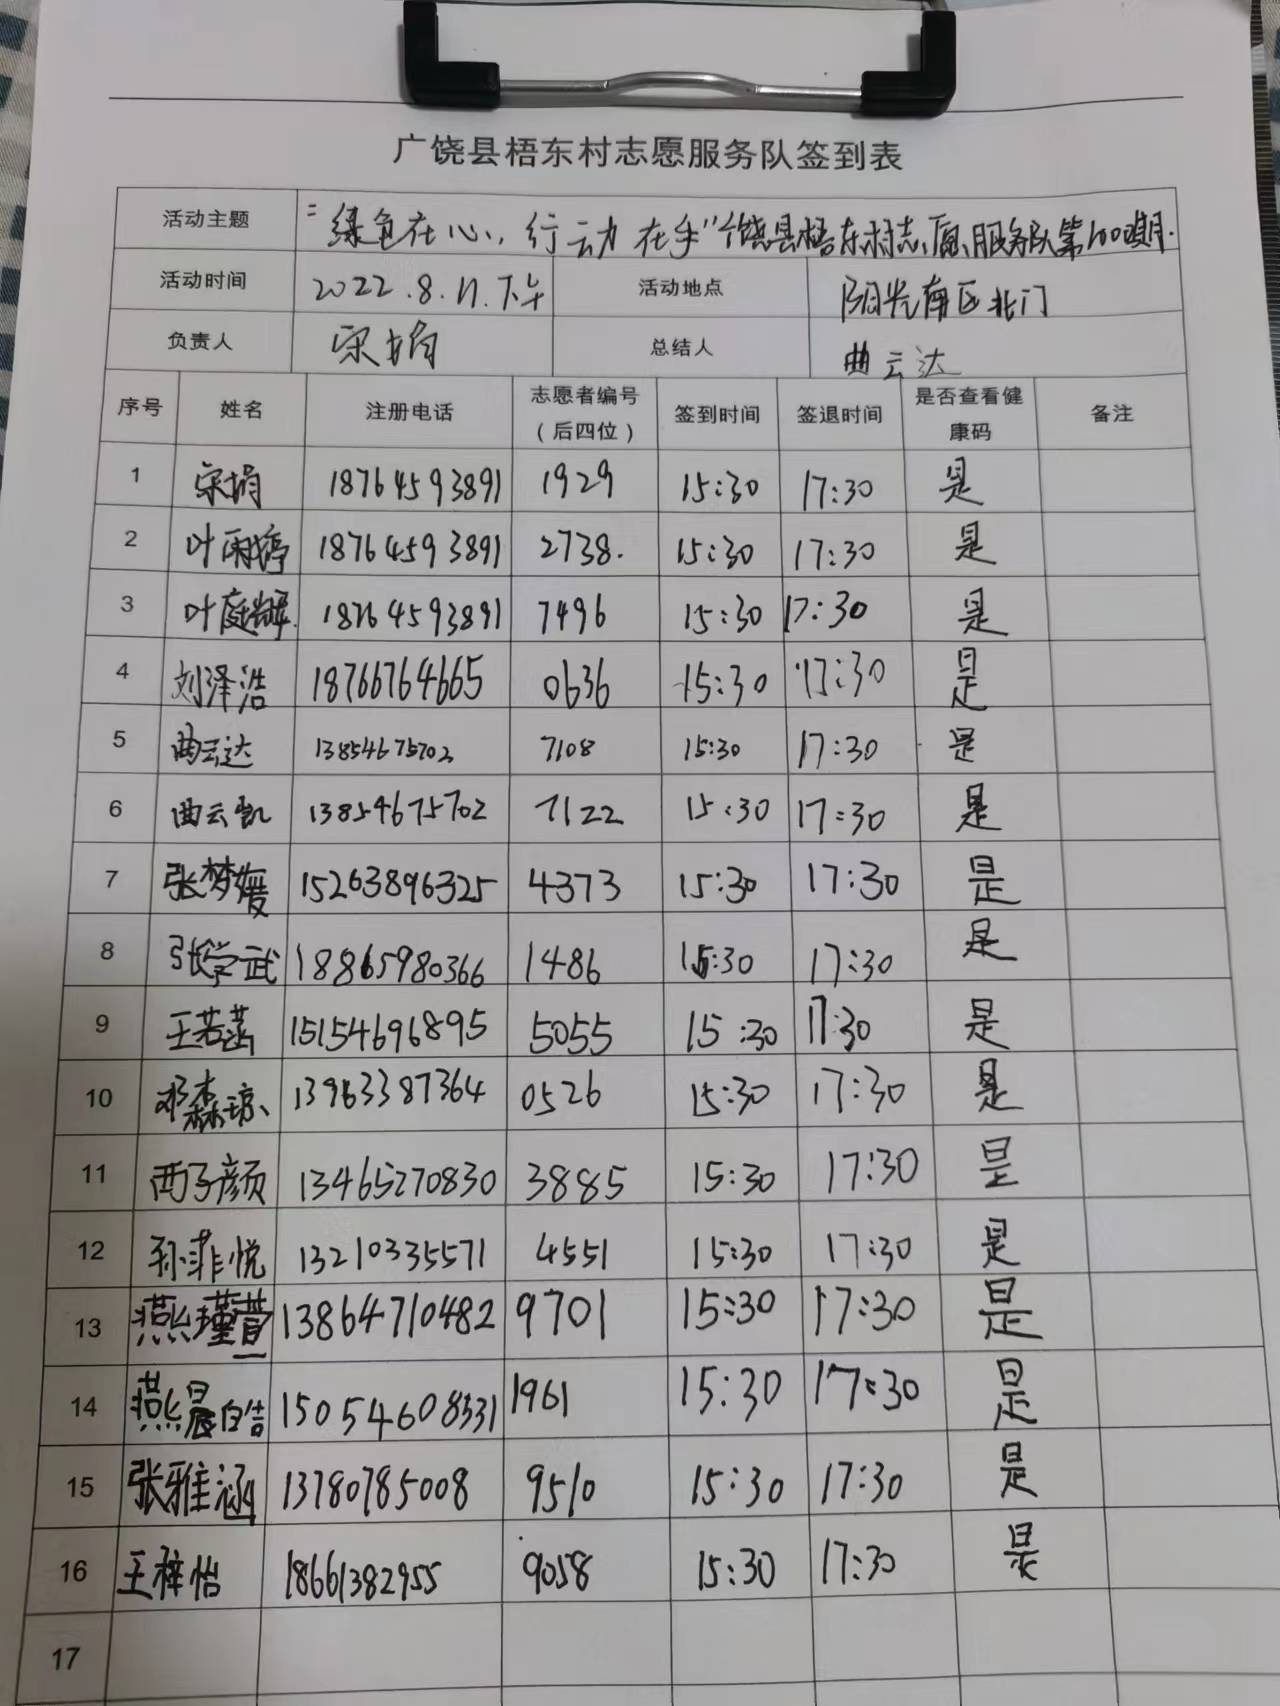 广饶县梧东村志愿服务队签到表
活动主题 "绿色在心,行动在手"广饶县梧东村志愿服务队第100期.
活动时间 2022.8.11.下午 活动地点 阳光南区北门
负责人 宋娟 总结人 曲云达
序号 姓名 注册电话 志愿者编号（后四位） 签到时间 签退时间 是否查看健康码 备注
1 宋娟 18764593891 1929 15:30 17:30 是
2 叶雨婷 18764593891 2738. 15:30 17:30 是
3 叶庭辉 18764593891 7496 15:30 17:30 是
4 刘泽浩 18766764665 0636 15:30 17:30 是
5 曲云达 13854675702 7108 15:30 17:30 是
6 曲云凯 13854675702 7122 15:30 17:30 是
7 张梦媛 15263896325 4373 15:30 17:30 是
8 张学武 18865980366 1486 15:30 17:30 是
9 王若菡 15154696895 5055 15:30 17:30 是
10 邓森琼 13963387364 0526 15:30 17:30 是
11 西子颜 13465270830 3885 15:30 17:30 是
12 孙菲悦 13210335571 4551 15:30 17:30 是
13 燕瑾萱 13864710482 9701 15:30 17:30 是
14 燕晨皓 15054608531 1961 15:30 17:30 是
15 张雅涵 13780785008 9510 15:30 17:30 是
16 王梓怡 18661382955 9058 15:30 17:30 是
17